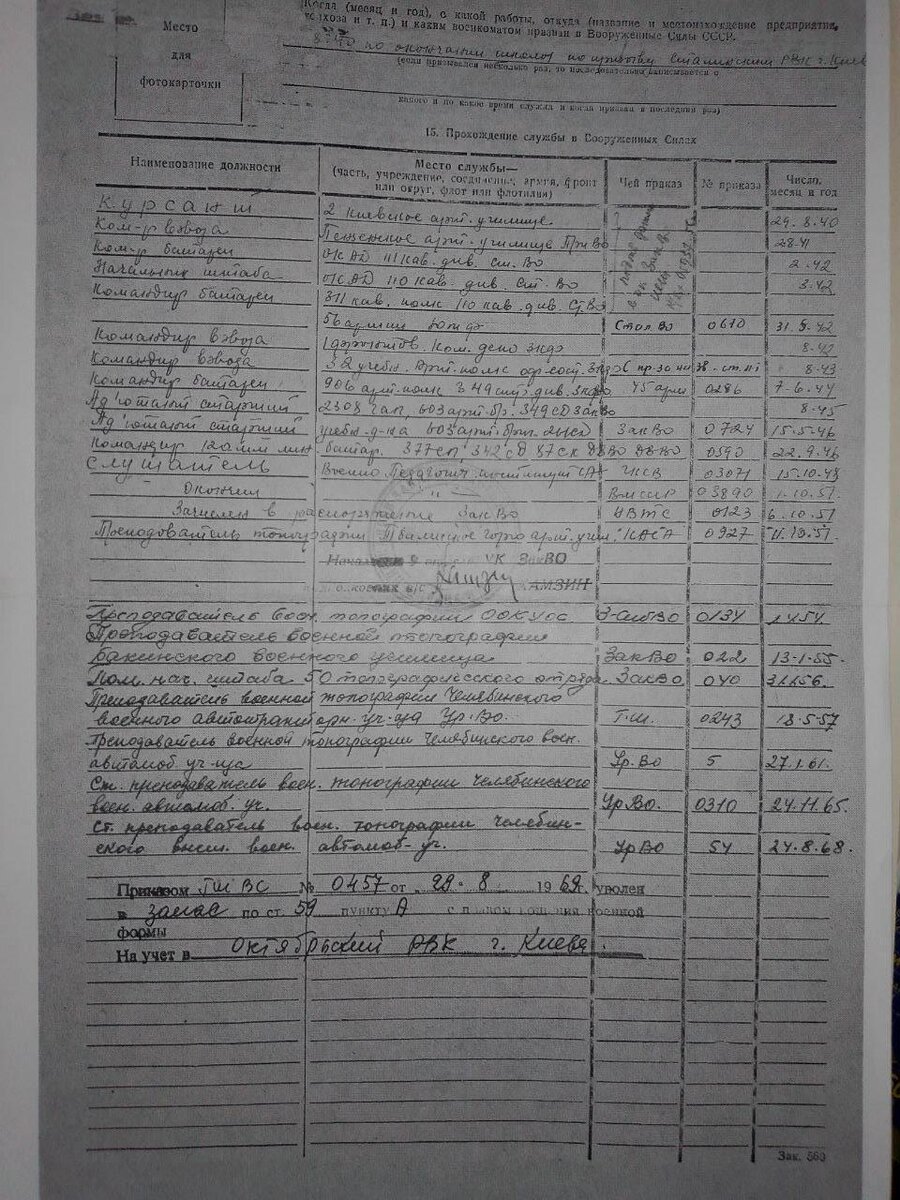 Место
для
фотокарточки
Когда (месяц и год), с какой работы, откуда (название и местонахождение предприятия,
колхоза и т. п.) и каким военкоматом призван в Вооруженные Силы СССР.
по окончании школы по призыву Сталинским РВК г. Киев
(если призывался несколько раз, то последовательно записывается с
какого и по какое время служил и когда призван в последний раз)
15. Прохождение службы в Вооруженных Силах
Наименование должности
Место службы— (часть, учреждение, соединение, армия, фронт или округ, флот или флотилия)
Чей приказ
№ приказа
Число, месяц и год
Курсант 2 Киевское арт. училище 29.8.40
Ком-р взвода арт. училище ПриВО
Ком-р батареи ОКАД 111 кав. див. Ст. ВО 2.42
Начальник штаба ОКАД 110 кав. див. Ст. ВО 3.42
Командир батареи 311 кав. полк 110 кав. див. Ст. ВО
56 армии СталВО 0610 31.5.42
Командир взвода 8.42
Командир взвода 32 учебн. арт. полк 8.43
Командир батареи 906 арт. полк 349 стр. див. 45 арм 0286 7.6.44
Ад'ютант старший 2308 гап, 603 арт. бр. 349 СД ЗакВО 8.45
Ад'ютант старший учебн. д-на ЗакВО 0724 15.5.46
Командир батар. 377 СП 342 СД 87 СК ДВО 0590 22.9.46
Слушатель Военно Педагогич. институт СА УКСВ 03071 15.10.48
Окончил — " — 03890 1.10.51
Зачислен в распоряжение ЗакВО 0123 6.10.51
Преподаватель топографии Тбилисское горно арт. учил. КАСА 0927
УК ЗакВО
КАМЗИН
Преподаватель воен. топографии ООКУОС З-СибВО 0134
Преподаватель военной топографии
бакинского военного училища ЗакВО 022 13.1.55.
Пом. нач. штаба 50 топографического отряда ЗакВО 040
Преподаватель военной топографии Челябинского
военного автотракторн. уч-ща Ур. ВО. 0243 18.5.57
Преподаватель военной топографии Челябинского воен.
автомоб. уч-ща Ур. ВО 5 27.1.61.
Ст. преподаватель воен. топографии Челябинского
воен. автомоб. уч. Ур. ВО. 0310 24.11.65
Ст. преподаватель воен. топографии Челябин-
ского высш. воен. автомоб. уч. УрВО 54 24.8.68.
Приказом № 0457 от 29.8 1969 г. уволен
в запас по ст. 59 пункту А с правом ношения военной
формы
На учет в Октябрьский РВК г. Киева.
Зак. 560